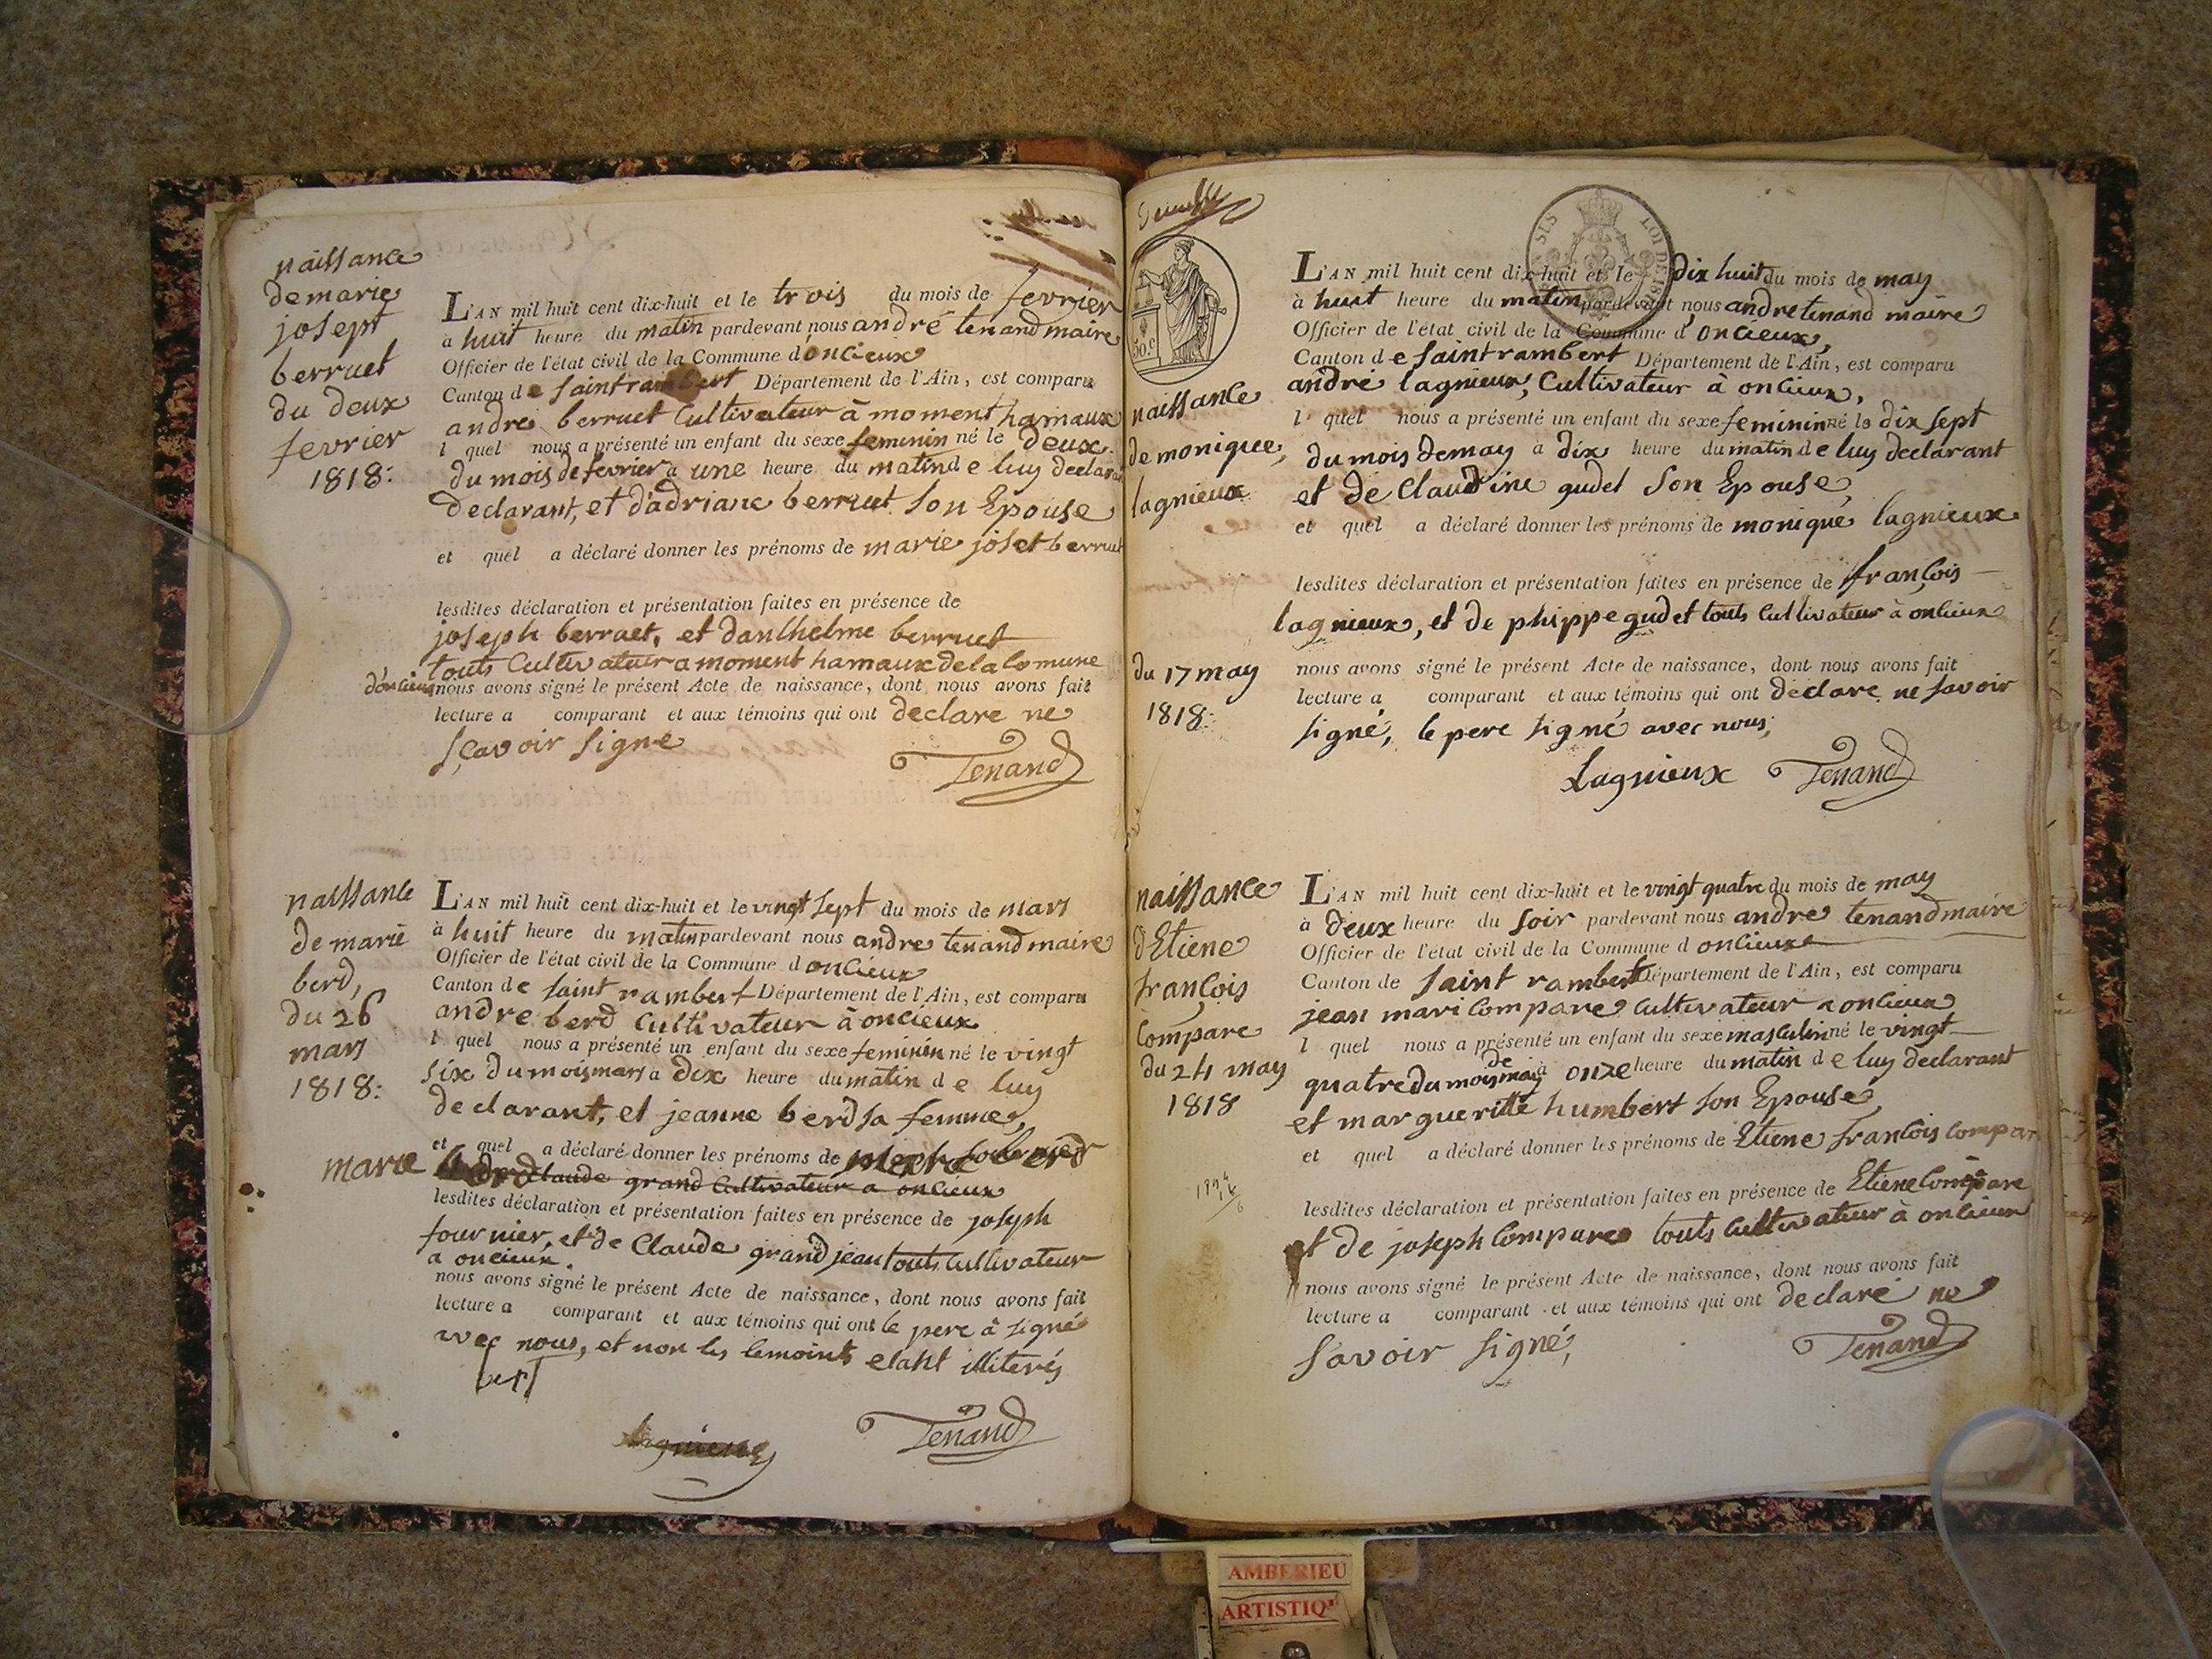 naissance
de marie
josept
berruet
du deux
fevrier
1818:
L'AN mil huit cent dix-huit et le trois du mois de fevrier
à huit heure du matin pardevant nous andré tenand maire
Officier de l'état civil de la Commune d onlieux
Canton de saint rambert Département de l'Ain, est comparu
andre berruet Cultivateur à moment hamaux
l quel nous a présenté un enfant du sexe feminin né le deux
du mois de fevrier à une heure du matin de luy declara
declarant, et d'adriane berruet son Epouse
et quel a déclaré donner les prénoms de marie joset berruet
lesdites déclaration et présentation faites en présence de
joseph berruet, et danthelme berruet
touts Cultivateur a moment hamaux de la Comune
d'onlieux nous avons signé le présent Acte de naissance, dont nous avons fait
lecture a comparant et aux témoins qui ont declare ne
sçavoir signe
Tenand
naissance
de marie
berd,
du 26
mars
1818:
L'AN mil huit cent dix-huit et le vingt sept du mois de mars
à huit heure du matin pardevant nous andre tenand maire
Officier de l'état civil de la Commune d onlieux
Canton de saint rambert Département de l'Ain, est comparu
andre berd Cultivateur à oncieux
l quel nous a présenté un enfant du sexe feminin né le vingt
six du mois mars a dix heure du matin de luy
declarant, et jeanne berd sa femme,
et quel a déclaré donner les prénoms de
marie berd Claude grand Cultivateur a onlieux
lesdites déclaration et présentation faites en présence de joseph
fournier, et de Claude grand jean touts Cultivateur
a oncieux.
nous avons signé le présent Acte de naissance, dont nous avons fait
lecture a comparant et aux témoins qui ont le pere à signé
avec nous, et non les temoints etant illiterés
berd
Lagnieux Tenand
naissance
de monique
lagnieux
du 17 may
1818:
50.C
L'AN mil huit cent dix-huit et le dix huit du mois de may
à huit heure du matin pardevant nous andre tenand maire
Officier de l'état civil de la Commune d onlieux,
Canton de saint rambert Département de l'Ain, est comparu
andré lagnieux, Cultivateur à onlieux,
l quel nous a présenté un enfant du sexe feminin né le dix sept
du mois de may a dix heure du matin de luy declarant
et de Claudine gudet son Epouse,
et quel a déclaré donner les prénoms de monique lagnieux
lesdites déclaration et présentation faites en présence de françois
lagnieux, et de phippe gudet touts Cultivateur à onlieux
nous avons signé le présent Acte de naissance, dont nous avons fait
lecture a comparant et aux témoins qui ont declare ne savoir
signé, le pere signé avec nous,
Lagnieux Tenand
naissance
d'Etiene
francois
Compare
du 24 may
1818
L'AN mil huit cent dix-huit et le vingt quatre du mois de may
à deux heure du soir pardevant nous andre tenand maire
Officier de l'état civil de la Commune d onlieux
Canton de saint rambert Département de l'Ain, est comparu
jean mari Compare Cultivateur a onlieux
l quel nous a présenté un enfant du sexe masculin né le vingt
quatre du mois de may à onze heure du matin de luy declarant
et margueritte humbert son Epouse,
et quel a déclaré donner les prénoms de Etiene francois Compar
lesdites déclaration et présentation faites en présence de Etiene Compare
et de joseph Compare touts Cultivateur à onlieux
nous avons signé le présent Acte de naissance, dont nous avons fait
lecture a comparant et aux témoins qui ont declaré ne
savoir signé,
Tenand
AMBERIEU
ARTISTIQ